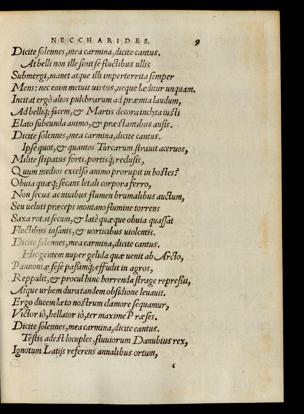 NECCHARIDES. 9
Dicite solennes, mea carmina, dicite cantus.
At belli non ille sinit se fluctibus ullis
Submergi, manet atque illi imperterrita semper
Mens: nec enim metuit uirtus, neque læditur unquam.
Incitat ergò altos pulchrarum ad præmia laudum,
Ad belliq; facem, & Martis decora inclyta iusti
Elato subeunda animo, & præstantibus ausis.
Dicite solennes, mea carmina, dicite cantus.
Ipse quot, & quantos Turcarum strauit aceruos,
Milite stipatus forti, portisq; reclusis,
Quum medios excelso animo prorupit in hostes?
Obuia quæq; secans letali corpora ferro,
Non secus ac niuibus flumen brumalibus auctum,
Seu ueluti præceps montano flumine torrens
Saxa rotat secum, & latè quæque obuia quassat
Fluctibus insanis, & uorticibus uiolentis.
Dicite solennes, mea carmina, dicite cantus.
Hic gentem nuper gelida quæ uenit ab Arcto,
Pannoniæ sese passimq; effudit in agros,
Reppulit, & procul hinc horrenda strage repressit,
Atque urbem duratandem obsidione leuauit.
Ergo ducem læto nostrum clamore sequamur,
Victor iô, bellator iô, ter maxime Præses.
Dicite solennes, mea carmina, dicite cantus.
Testis adest locuples, fluuiorum Danubius rex,
Ignotum Latijs referens annalibus ortum,